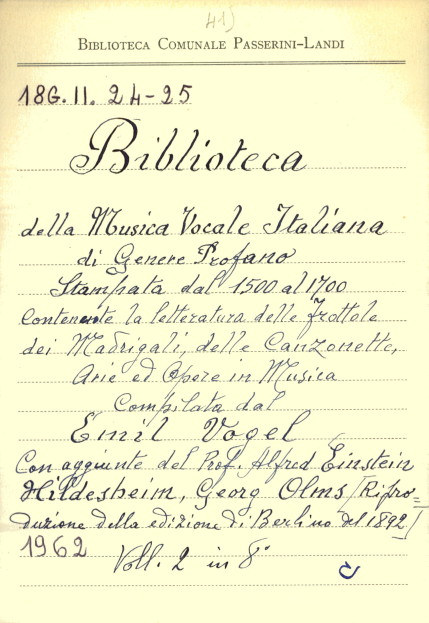 41)
BIBLIOTECA COMUNALE PASSERINI-LANDI
18G. II. 24-25
Biblioteca
della Musica Vocale Italiana
di Genere Profano
Stampata dal 1500 al 1700
Contenente la letteratura delle frottole
dei Madrigali, delle Canzonette,
Arie ed Opere in Musica
Compilata dal
Emil Vogel
Con aggiunte del Prof. Alfred Einstein
Hildesheim, Georg Olms [Ripro=
duzione della edizione di Berlino del 1892]
1962
Voll. 2 in 8°